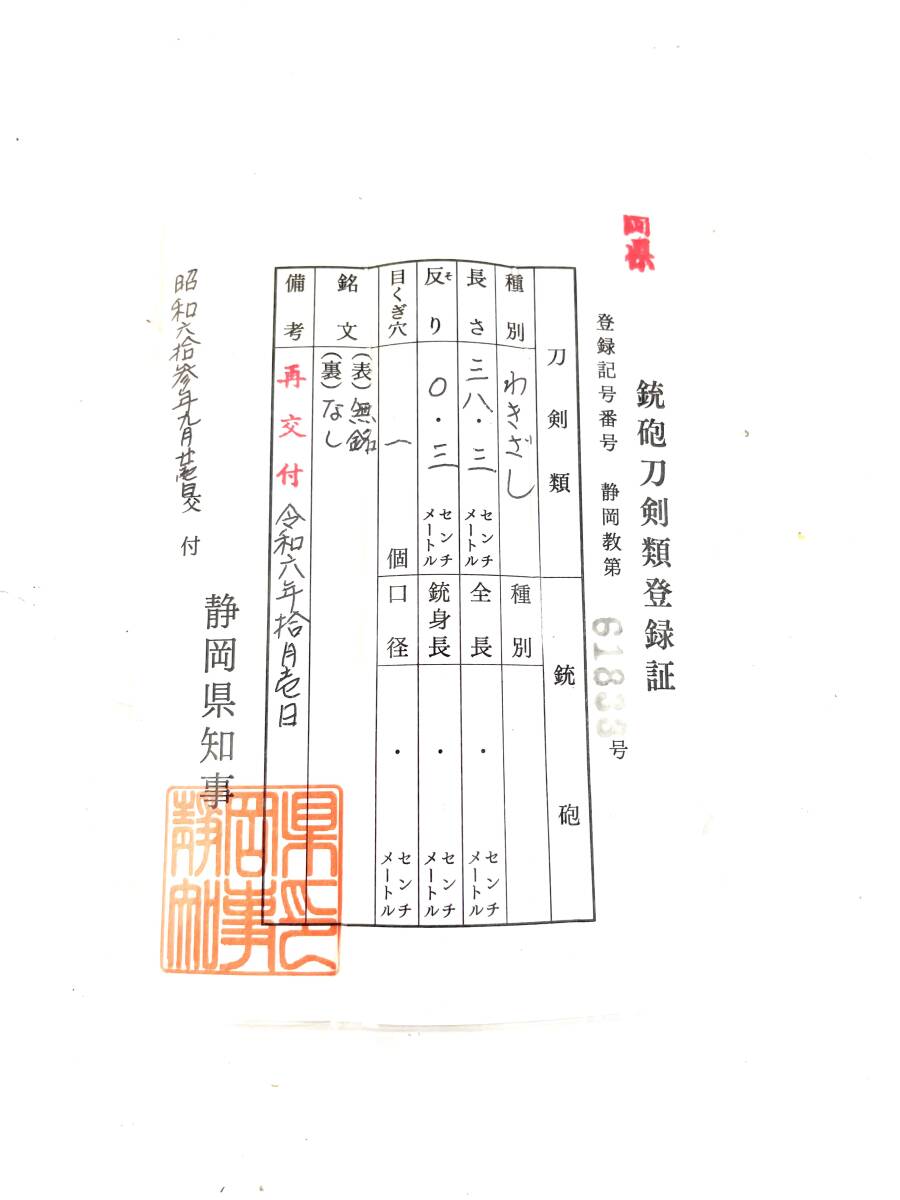 岡県
銃砲刀剣類登録証
登録記号番号 静岡教第 61833号
刀剣類
種別 わきざし
長さ 三八・三 センチメートル
反り 〇・三 センチメートル
そ
目くぎ穴 一 個
銃砲
種別
全長 ・ センチメートル
銃身長 ・ センチメートル
口径 ・ センチメートル
銘文 (表)無銘
(裏)なし
備考 再交付 令和六年拾月壱日
昭和六拾参年九月廿壱日交付
静岡県知事
静岡県知事之印